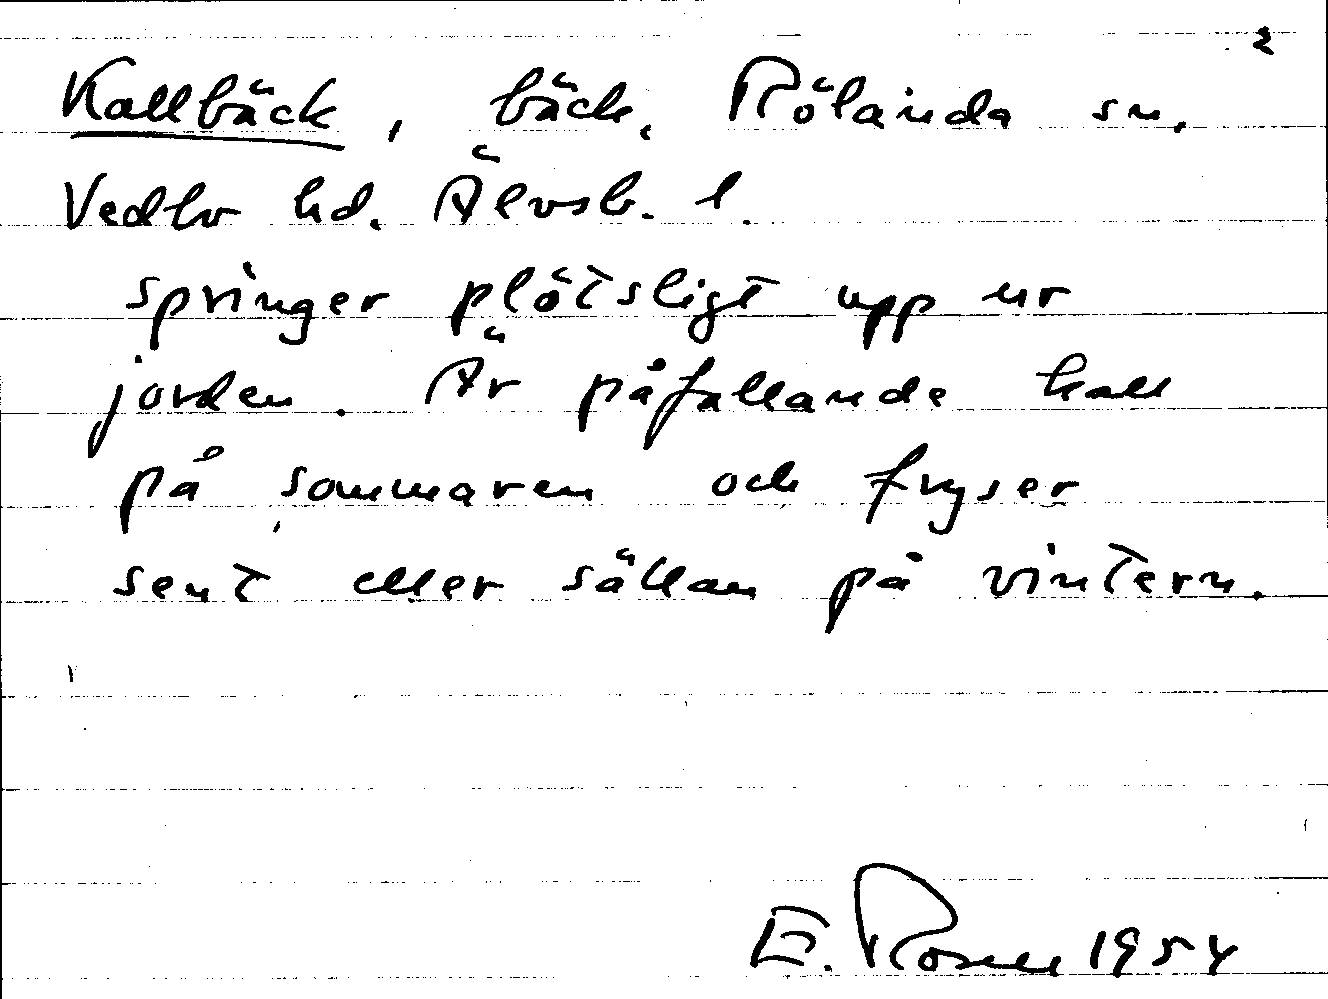 2
Kallbäck, bäck. Rölanda sn.
Vedbo hd. Älvsb. l.
springer plötsligt upp ur
jorden. Är påfallande kall
på sommaren och fryser
sent eller sällan på vintern.
E. Rosell 1954